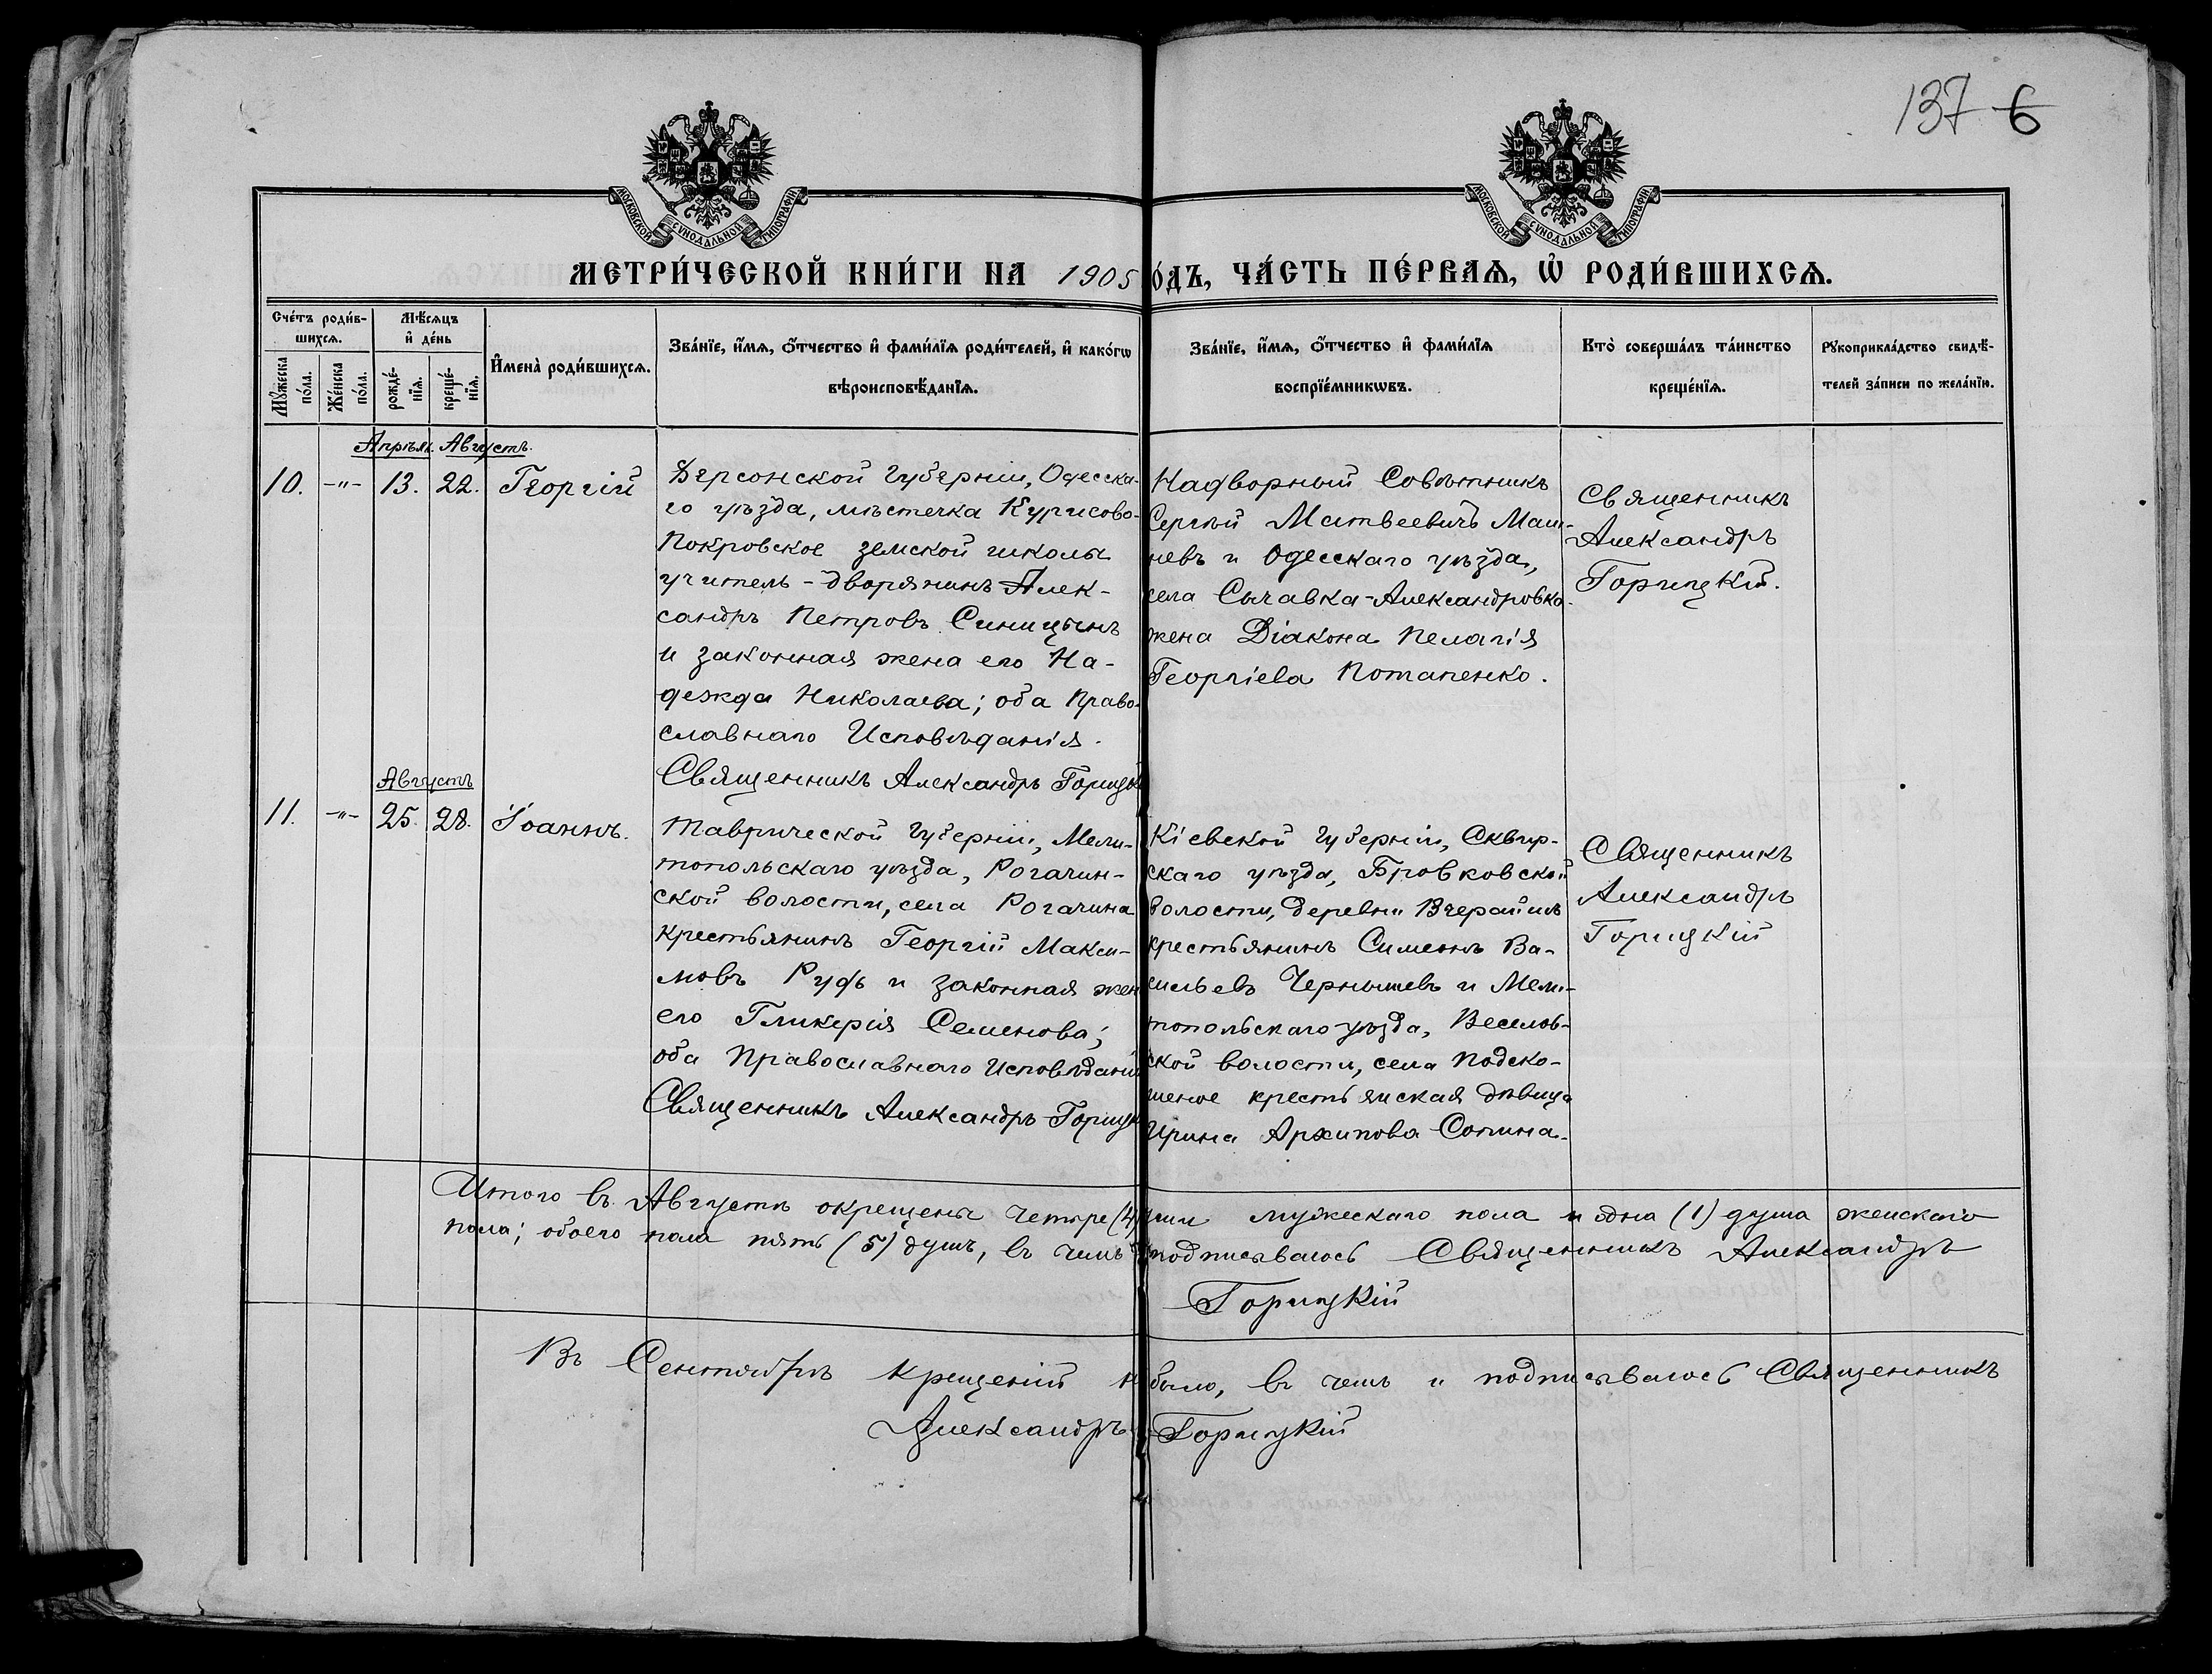 137 6
МОСКОВСКОЙ СѴНОДАЛЬНОЙ ТИПОГРАФІИ
МОСКОВСКОЙ СѴНОДАЛЬНОЙ ТИПОГРАФІИ
МЕТРИ́ЧЕСКОЙ КНИ́ГИ НА 1905 О́ДЪ, ЧА́СТЬ ПЕ́РВАѦ, Ѡ҆ РОДИ́ВШИХСѦ.
Сче́тъ роди́в-
шихсѧ.
Мꙋ́жеска по́ла.
Же́нска по́ла.
Мѣ́сѧцъ
и҆ де́нь
рожде́-
нїѧ.
креще́-
нїѧ.
И҆мена̀ роди́вшихсѧ.
Зва́нїе, и҆́мѧ, ѻ҆́тчество и҆ фами́лїѧ роди́телей, и҆ како́гѡ
вѣроисповѣ́данїѧ.
Зва́нїе, и҆́мѧ, ѻ҆́тчество и҆ фами́лїѧ
воспрїе́мникѡвъ.
Кто̀ соверша́лъ та́инство
креще́нїѧ.
Рꙋкоприкла́дство свидѣ́-
телей за́писи по жела́нїю.
Апрѣль. Августъ.
10. -"- 13. 22. Георгій
Херсонской губерніи, Одесска-
го уѣзда, мѣстечка Курисово-
Покровское земской школы
учитель - дворянинъ Алек-
сандръ Петровъ Синицынъ
и законная жена его На-
дежда Николаева; оба Право-
славнаго Исповѣданія.
Священникъ Александръ Горицк
Надворный Совѣтникъ
Сергѣй Матвеевичъ
невъ и Одесскаго уѣзда,
села Сычавка-Александровка
жена Діакона Пелагія
Георгіева Потапенко.
Священникъ
Александръ
Горицкій.
Августъ
11. -"- 25. 28. Іоаннъ.
Таврической губерніи, Мели-
топольскаго уѣзда, Рогачин-
ской волости, села Рогачика
крестьянинъ Георгій Макси-
мовъ Руфъ и законная жен
его Гликерія Семенова;
оба Православнаго Исповѣданія
Священникъ Александръ Горицк
Кіевской губерніи, Сквир-
скаго уѣзда, Бровковской
волости, деревни
крестьянинъ Симеонъ Ва-
сильевъ Чернышевъ и Мели-
топольскаго уѣзда, Веселов-
ской волости, села Подско-
шеное крестьянская дѣвица
Ирина Архипова Сопина.
Священникъ
Александръ
Горицкій
Итого въ Августѣ окрещены четыре (4) души мужескаго пола и одна (1) душа женскаго
пола; обоего пола пять (5) душъ, въ чемъ подписываюсь Священникъ Александръ
Горицкій
Въ Сентябрѣ крещеній н было, въ чемъ и подписываюсь Священникъ
Александръ Горицкій